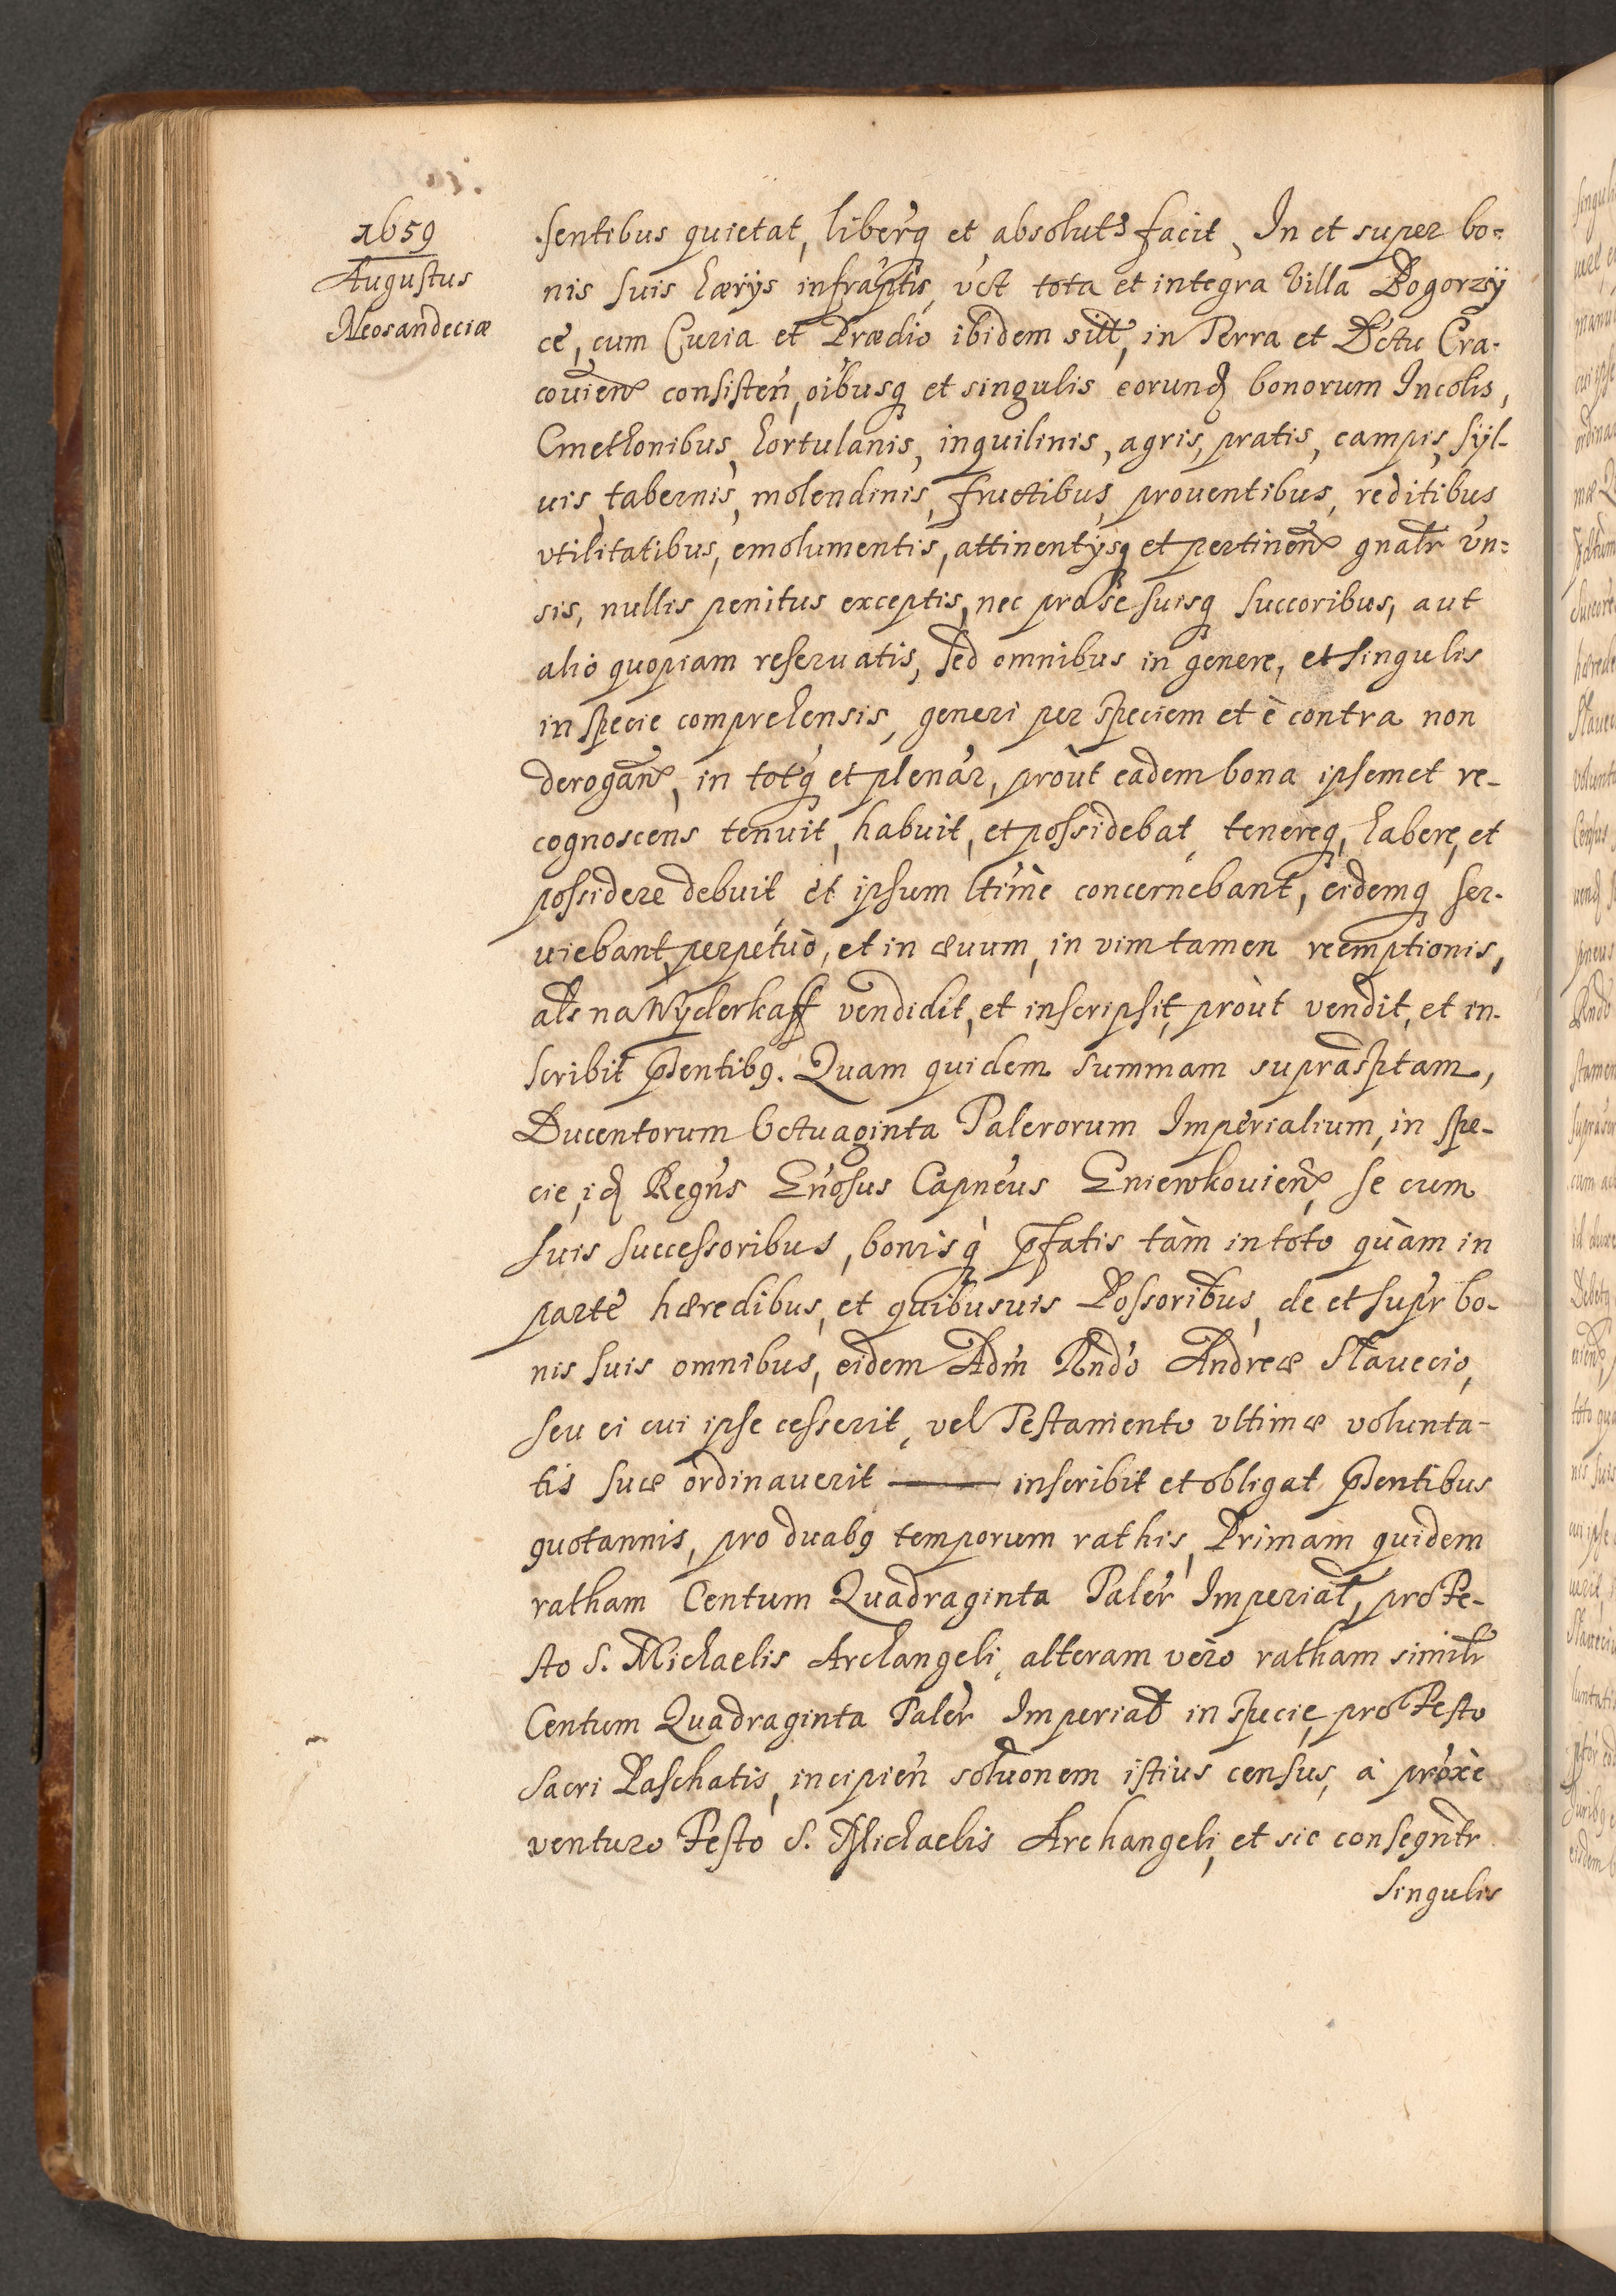 1659
Augustus
Neosandeciæ
sentibus quietat, liberq̃ et absolut facit, In et super bo=
nis suis hærijs infraptis, vct tota et integra Villa Pogorzÿ
ce, cum Curia et Prædio ibidem sitt, in Terra et Dctu Cra-
couien consisten, oibusq̃ et singulis eorund bonorum Incolis,
Cmethonibus, hortulanis, inquilinis, agris, pratis, campis, sÿl-
uis, tabernis, molendinis, fructibus, prouentibus, reditibus
vtilitatibus, emolumentis, attinentÿsq̃ et pertinen gnatr vn=
sis, nullis penitus exceptis, nec pro se suisq̃ succoribus, aut
alio quopiam reseruatis, sed omnibus in genere, et singulis
in specie comprehensis, generi per speciem et è contra non
derogan, in totq̃ et plenar, proùt eadem bona ipsemet re-
cognoscens tenuit, habuit, et possidebat, tenereq̃, habere, et
possidere debuit, et ipsum ltimè concernebant, eidemq̃ ser-
uiebant, perpetuò, et in æuum, in vim tamen reemptionis,
als na Wyderkaff vendidit, et inscripsit, proùt vendit, et in-
scribit psentibq. Quam quidem summam suprasptam,
Ducentorum Octuaginta Talerorum Imperialium, in spe-
cie, id Regns Gnosus Capneus Gniewkouien, se cum
suis successoribus, bonisq̃ pfatis tàm in toto quàm in
parte hæredibus, et quibusuis Possoribus, de et supr bo-
nis suis omnibus, eidem Adm Rndo Andreæ Slauecio,
seu ei cui ipse cesserit, vel Testamento vltimæ volunta-
tis suæ ordinauerit —— inscribit et obligat psentibus
quotannis, pro duabq temporum rathis, Primam quidem
ratham Centum Quadraginta Taler Imperial, pro Fe-
sto S. Michaelis Archangeli, alteram vero ratham similr
Centum Quadraginta Taler Imperial in specie, pro Festo
Sacri Paschatis, incipien soluonem istius census, à proxè
venturo Festo S. Michaelis Archangeli, et sic conseqntr
Singulis